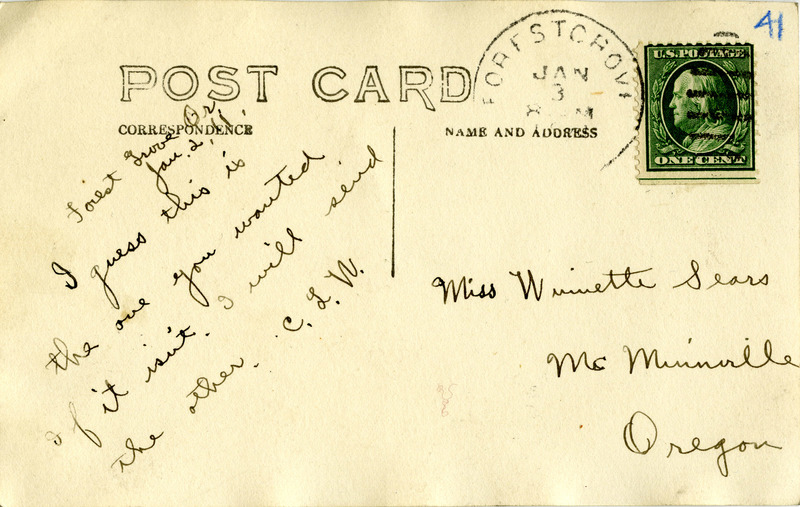 POST CARD
CORRESPONDENCE
NAME AND ADDRESS
FOREST GROVE
JAN
3
8 M
U.S. POSTAGE
ONE CENT
41
Forest Grove Or.
Jan. 2, '11.
I guess this is
the one you wanted
if it isn't I will send
the other. C. L. W.
Miss Winnette Sears
Mc Minnville
Oregon